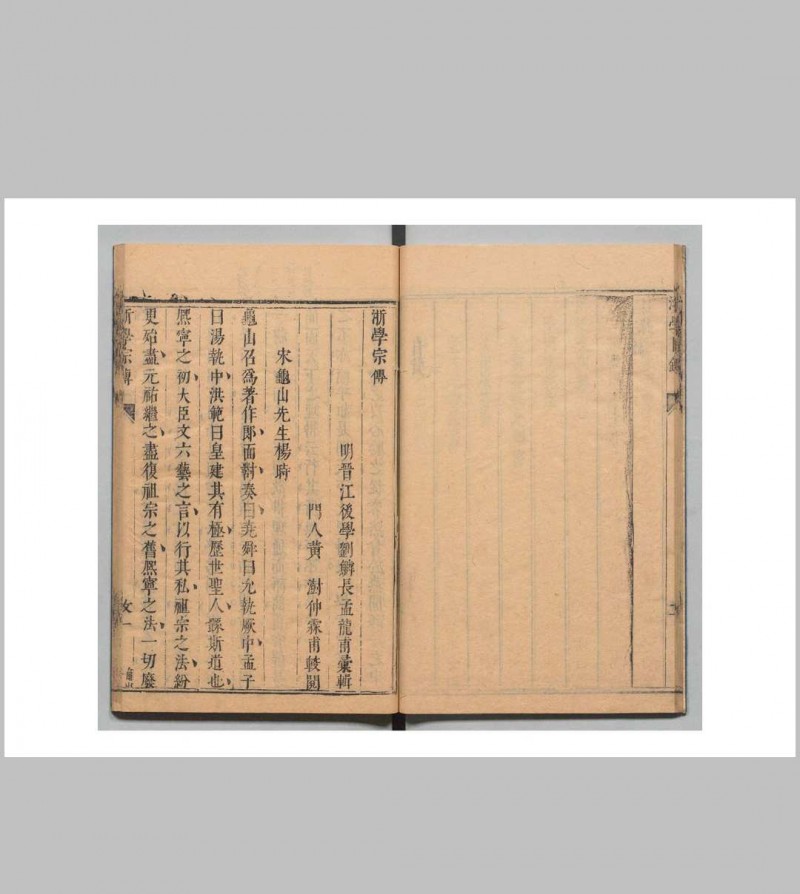 浙學宗傳
明晉江後學劉鱗長孟龍甫彙輯
門人黃 澍仲霖甫較閱
宋龜山先生楊時
龜山召爲著作郎面對奏曰堯舜曰允執厥中孟子
曰湯執中洪範曰皇建其有極歷世聖人繇斯道也
熙寧之初大臣文六藝之言以行其私祖宗之法紛
更殆盡元祐繼之盡復祖宗之舊熙寧之法一切廢
浙學宗傳
文一